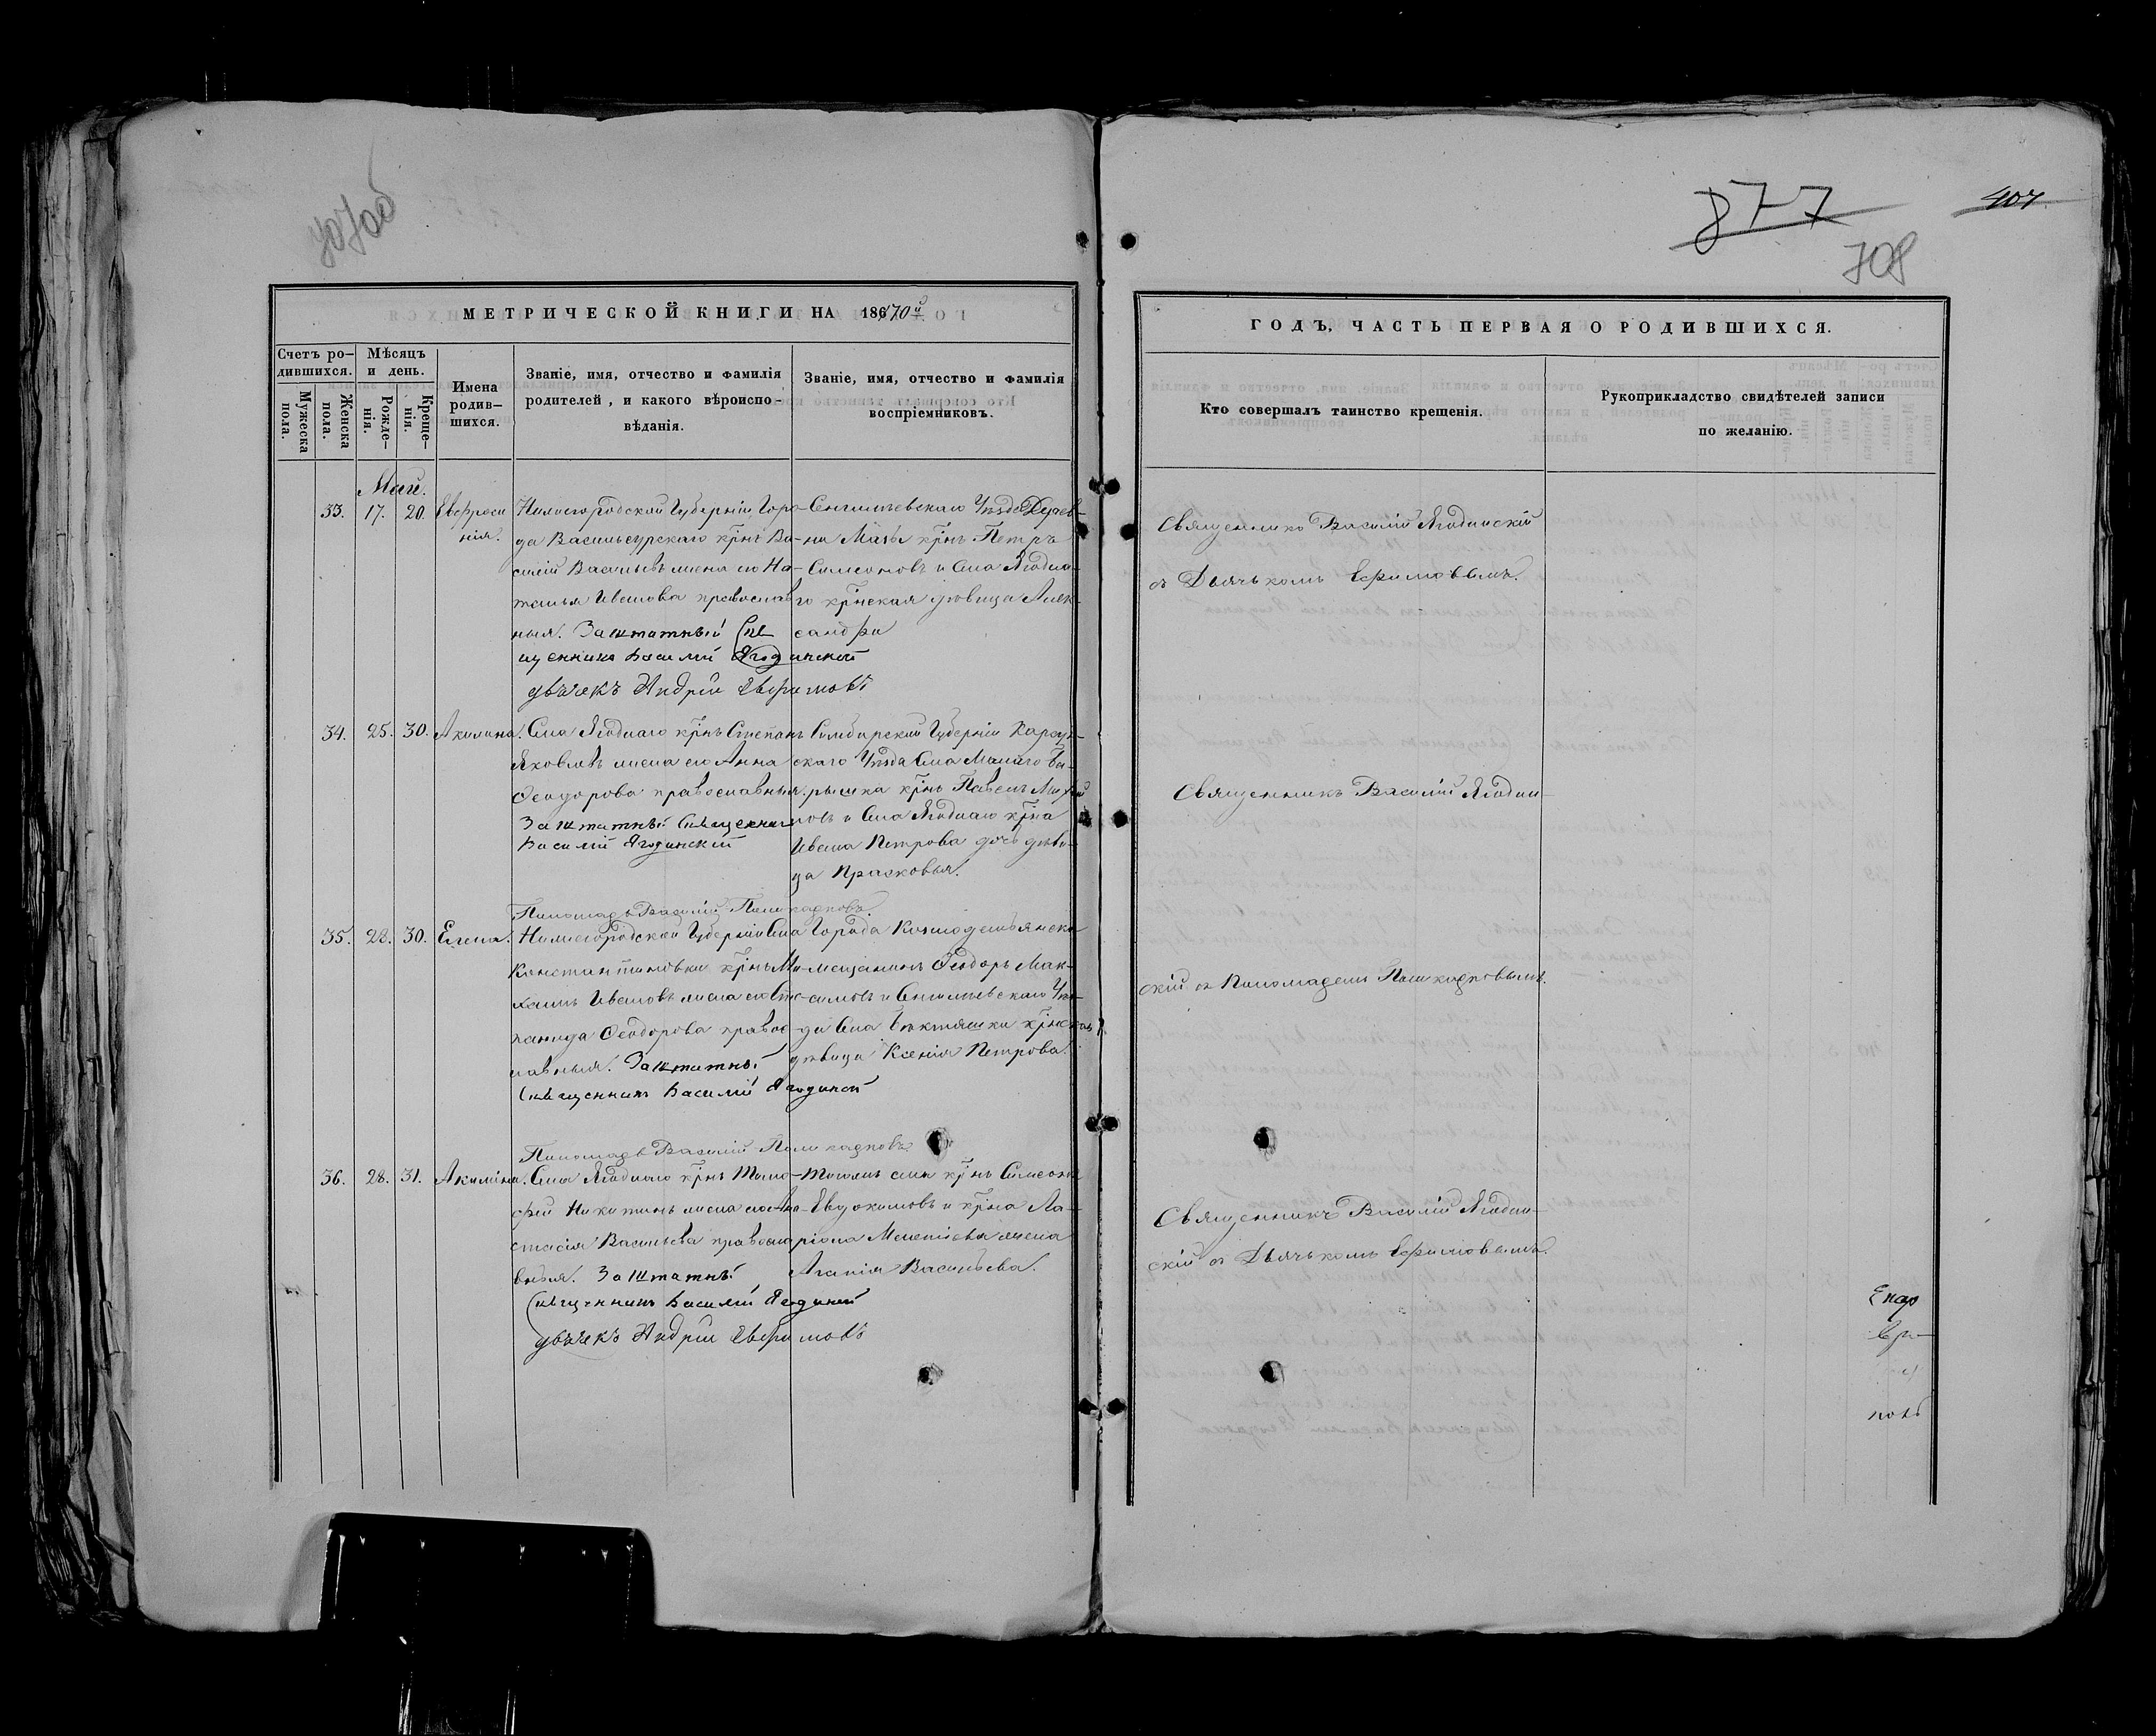 707об
877
407
708
МЕТРИЧЕСКОЙ КНИГИ НА 18670й
ГОДЪ, ЧАСТЬ ПЕРВАЯ О РОДИВШИХСЯ.
Счетъ ро-
дившихся.
Мужеска
пола.
Женска
пола.
Мѣсяцъ
и день.
Рожде-
нія.
Креще-
нія.
Имена
родив-
шихся.
Званіе, имя, отчество и фамилія
родителей, и какого вѣроиспо-
вѣданія.
Званіе, имя, отчество и фамилія
воспріемниковъ.
Кто совершалъ таинство крещенія.
Рукоприкладство свидѣтелей записи
по желанію.
Май.
33. 17. 20. Евфроси
нія.
Нижегородской Губерніи Горо-
да Васильсурскаго крнъ Ва-
силій Васильевъ жена его На-
талья Иванова православ
ныя. Заштатный Свя
щенникъ Василій Ягодинской
дьячекъ Андрей Евфимовъ
Сенгилеевскаго Уѣзда Дерев-
ни Мазы крнъ Петръ
Симеоновъ и Села Ягодна-
го крнская дѣвица Алек-
сандра
Священникъ Василій Ягодинскій
съ Дьячькомъ Ефимовымъ.
34. 25. 30. Акилина.
Села Ягоднаго крнъ Степанъ
Яковлевъ жена его Анна
Ѳеодорова православныя.
Заштатный Священник
Василій Ягодинской
Пономарь Василій Поликарповъ.
Симбирской Губерніи Карсун-
скаго Уѣзда Села Малаго Ба-
рышка крнъ Павелъ Михай
ловъ и Села Ягоднаго крна
Ивана Петрова дочь дѣви-
ца Прасковья.
Священникъ Василій Ягодин-
скій съ Пономаремъ Поликарповымъ.
35. 28. 30. Елена.
Нижегородской Губерніи Села
Константиновки крнъ Ми-
хаилъ Ивановъ жена его Сте-
панида Ѳеодорова правос-
лавныя. Заштатный
Священникъ Василій Ягодинской
Пономарь Василій Поликарповъ
Города Козмодемьянска
мещанинъ Ѳеодоръ Мак-
симовъ и Сенгилеевскаго Уѣз-
да Села Бектяшки крнская
дѣвица Ксенія Петрова.
36. 28. 31. Акилина.
Села Ягоднаго крнъ Тимо-
фей Никитинъ жена его Ана-
стасія Васильева правосла
вныя. Заштатный
Священникъ Василій Ягодиной
дьячекъ Андрей Евфимовъ
Тогожъ села крнъ Симеонъ
Евдокимовъ и крна Ла-
ріона Мелетіева жена
Агапія Васильева.
Священникъ Василій Ягодин-
скій съ Дьячькомъ Ефимовымъ.